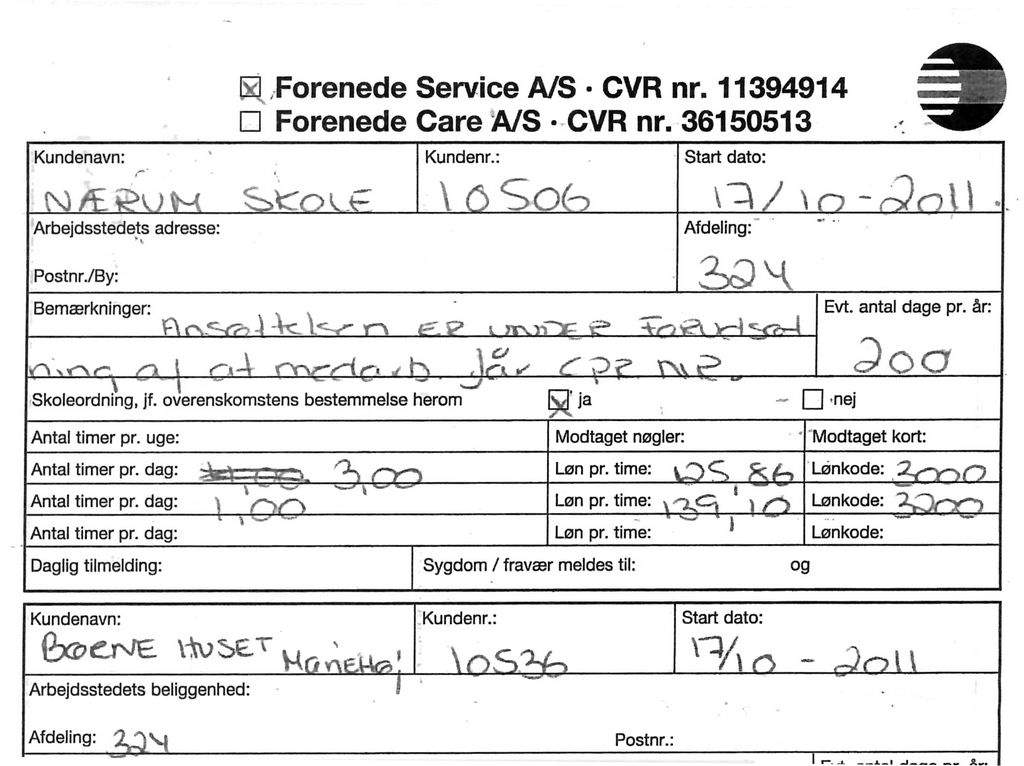 ☒ Forenede Service A/S · CVR nr. 11394914
☐ Forenede Care A/S · CVR nr. 36150513
Kundenavn: Kundenr.: Start dato:
NÆRUM SKOLE 10506 17/10-2011.
Arbejdsstedets adresse: Afdeling:
Postnr./By: 324
Bemærkninger: Evt. antal dage pr. år:
Ansættelsen ER UNDER Forudsæt
ning af at medarb. får CPR NR. 200
Skoleordning, jf. overenskomstens bestemmelse herom ☒ ja ☐ nej
Antal timer pr. uge: Modtaget nøgler: Modtaget kort:
Antal timer pr. dag: 3,00 Løn pr. time: 125,86 Lønkode: 3000
Antal timer pr. dag: 1,00 Løn pr. time: 139,10 Lønkode: 3200
Antal timer pr. dag: Løn pr. time: Lønkode:
Daglig tilmelding: Sygdom / fravær meldes til: og
Kundenavn: Kundenr.: Start dato:
BØRNE HUSET MarieHøj 10536 17/10 - 2011
Arbejdsstedets beliggenhed:
Afdeling: 324 Postnr.:
Evt. antal dage pr. år: